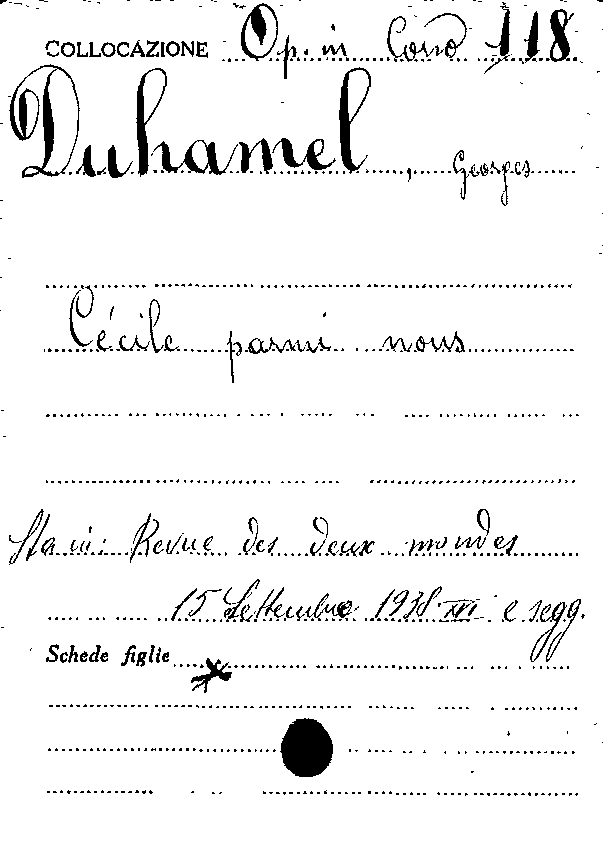 COLLOCAZIONE Op. in Corso 118
Duhamel, Georges
Cécile parmi nous
Sta in: Revue des deux mondes
15 Settembre 1938 XVI e segg.
Schede figlie